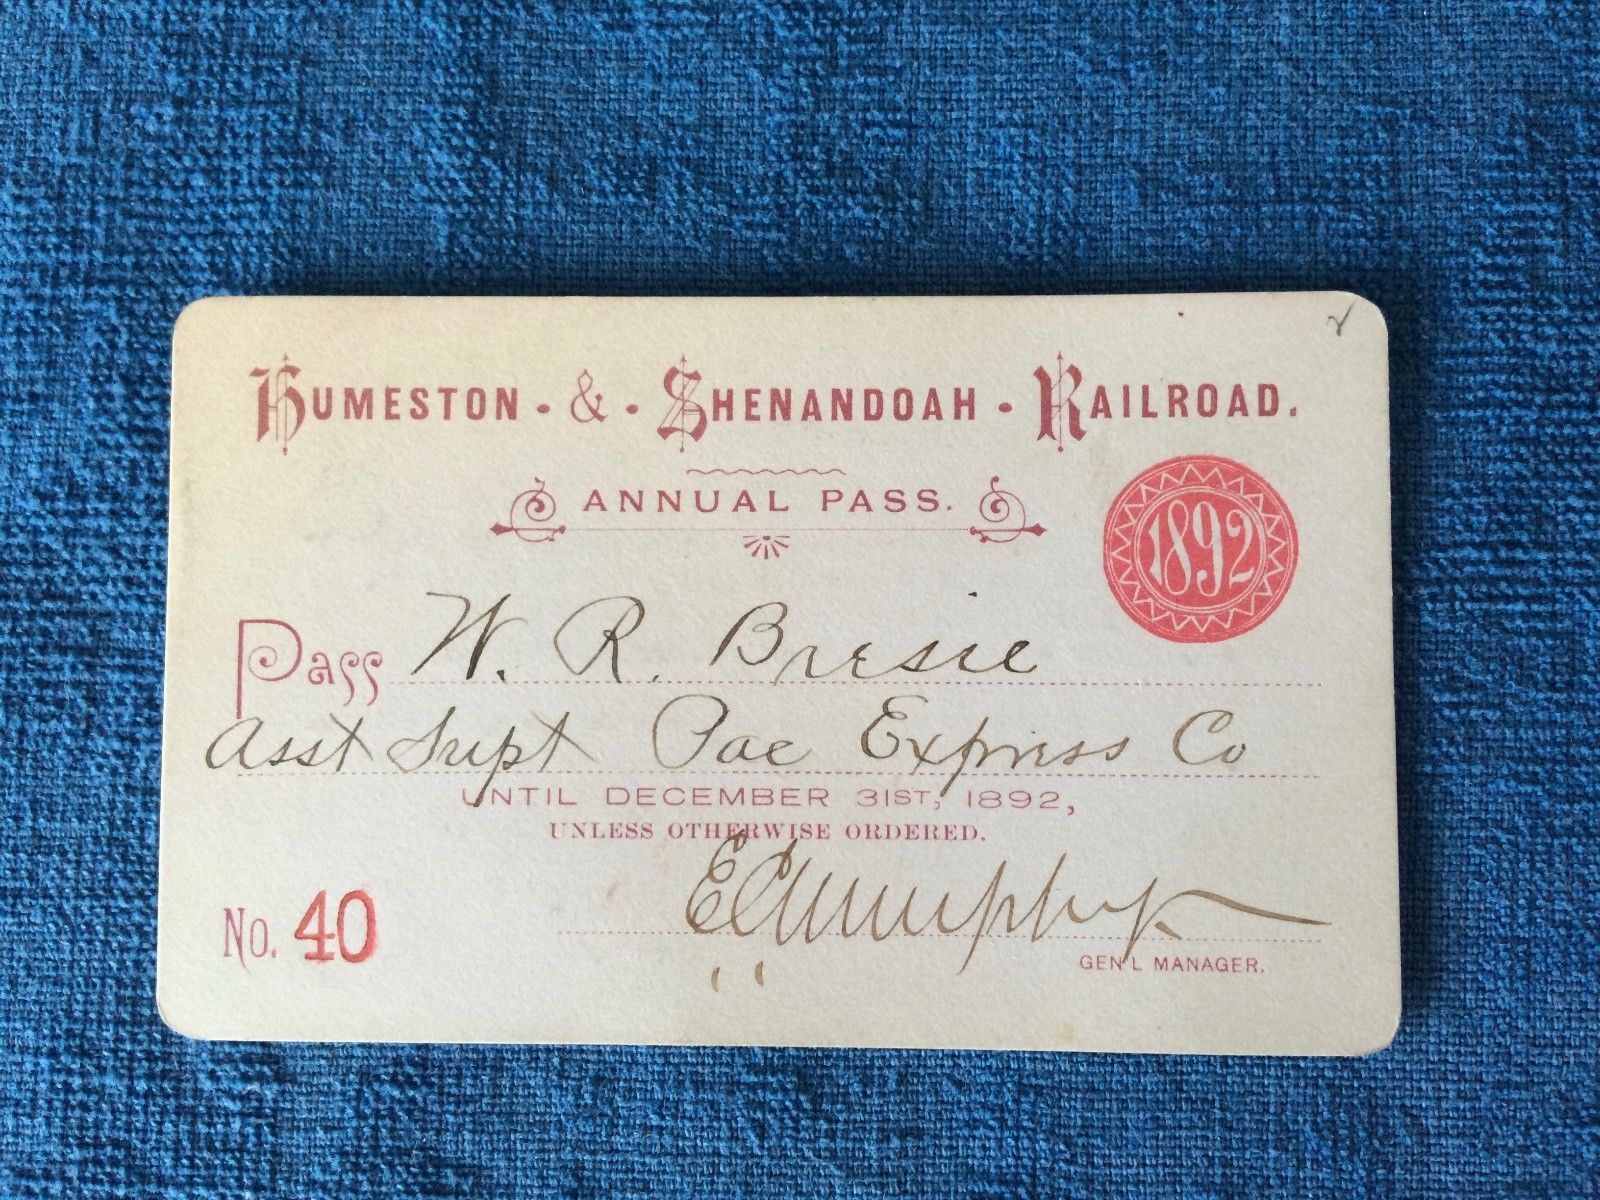 HUMESTON · & · SHENANDOAH · RAILROAD.
ANNUAL PASS.
1892
Pass W. R. Bresie
Asst Supt Pac Express Co
UNTIL DECEMBER 31ST, 1892,
UNLESS OTHERWISE ORDERED.
No. 40
E C Murphy
GEN'L MANAGER.